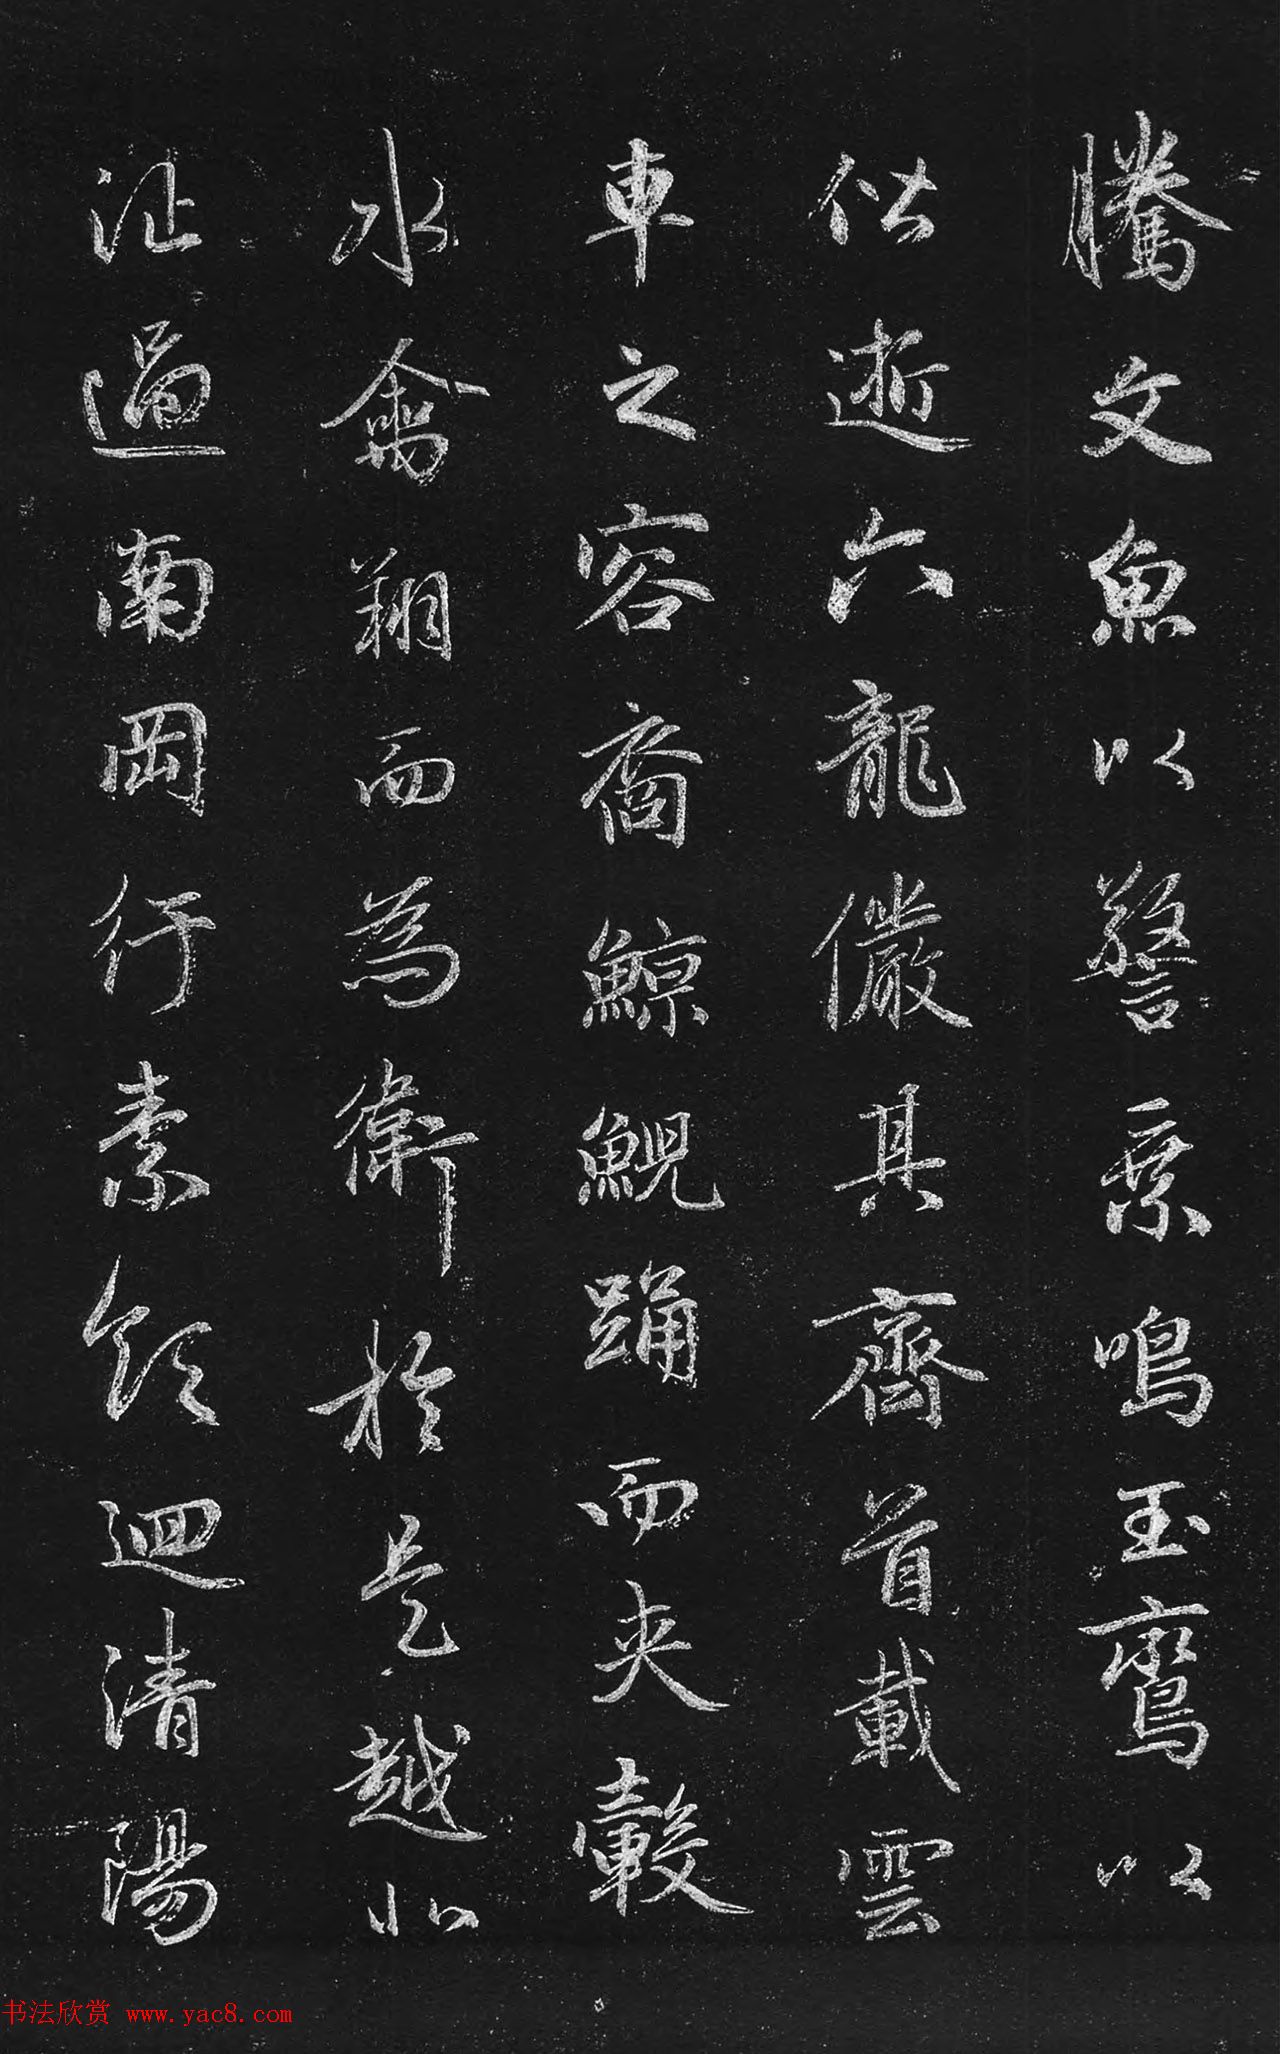 騰文魚以警乗鳴玉鸞以
偕逝六龍儼其齊首載雲
車之容裔鯨鯢踊而夾轂
水禽翔而為衛於是越北
沚過南岡紆素領迴清陽
书法欣赏 www.yac8.com